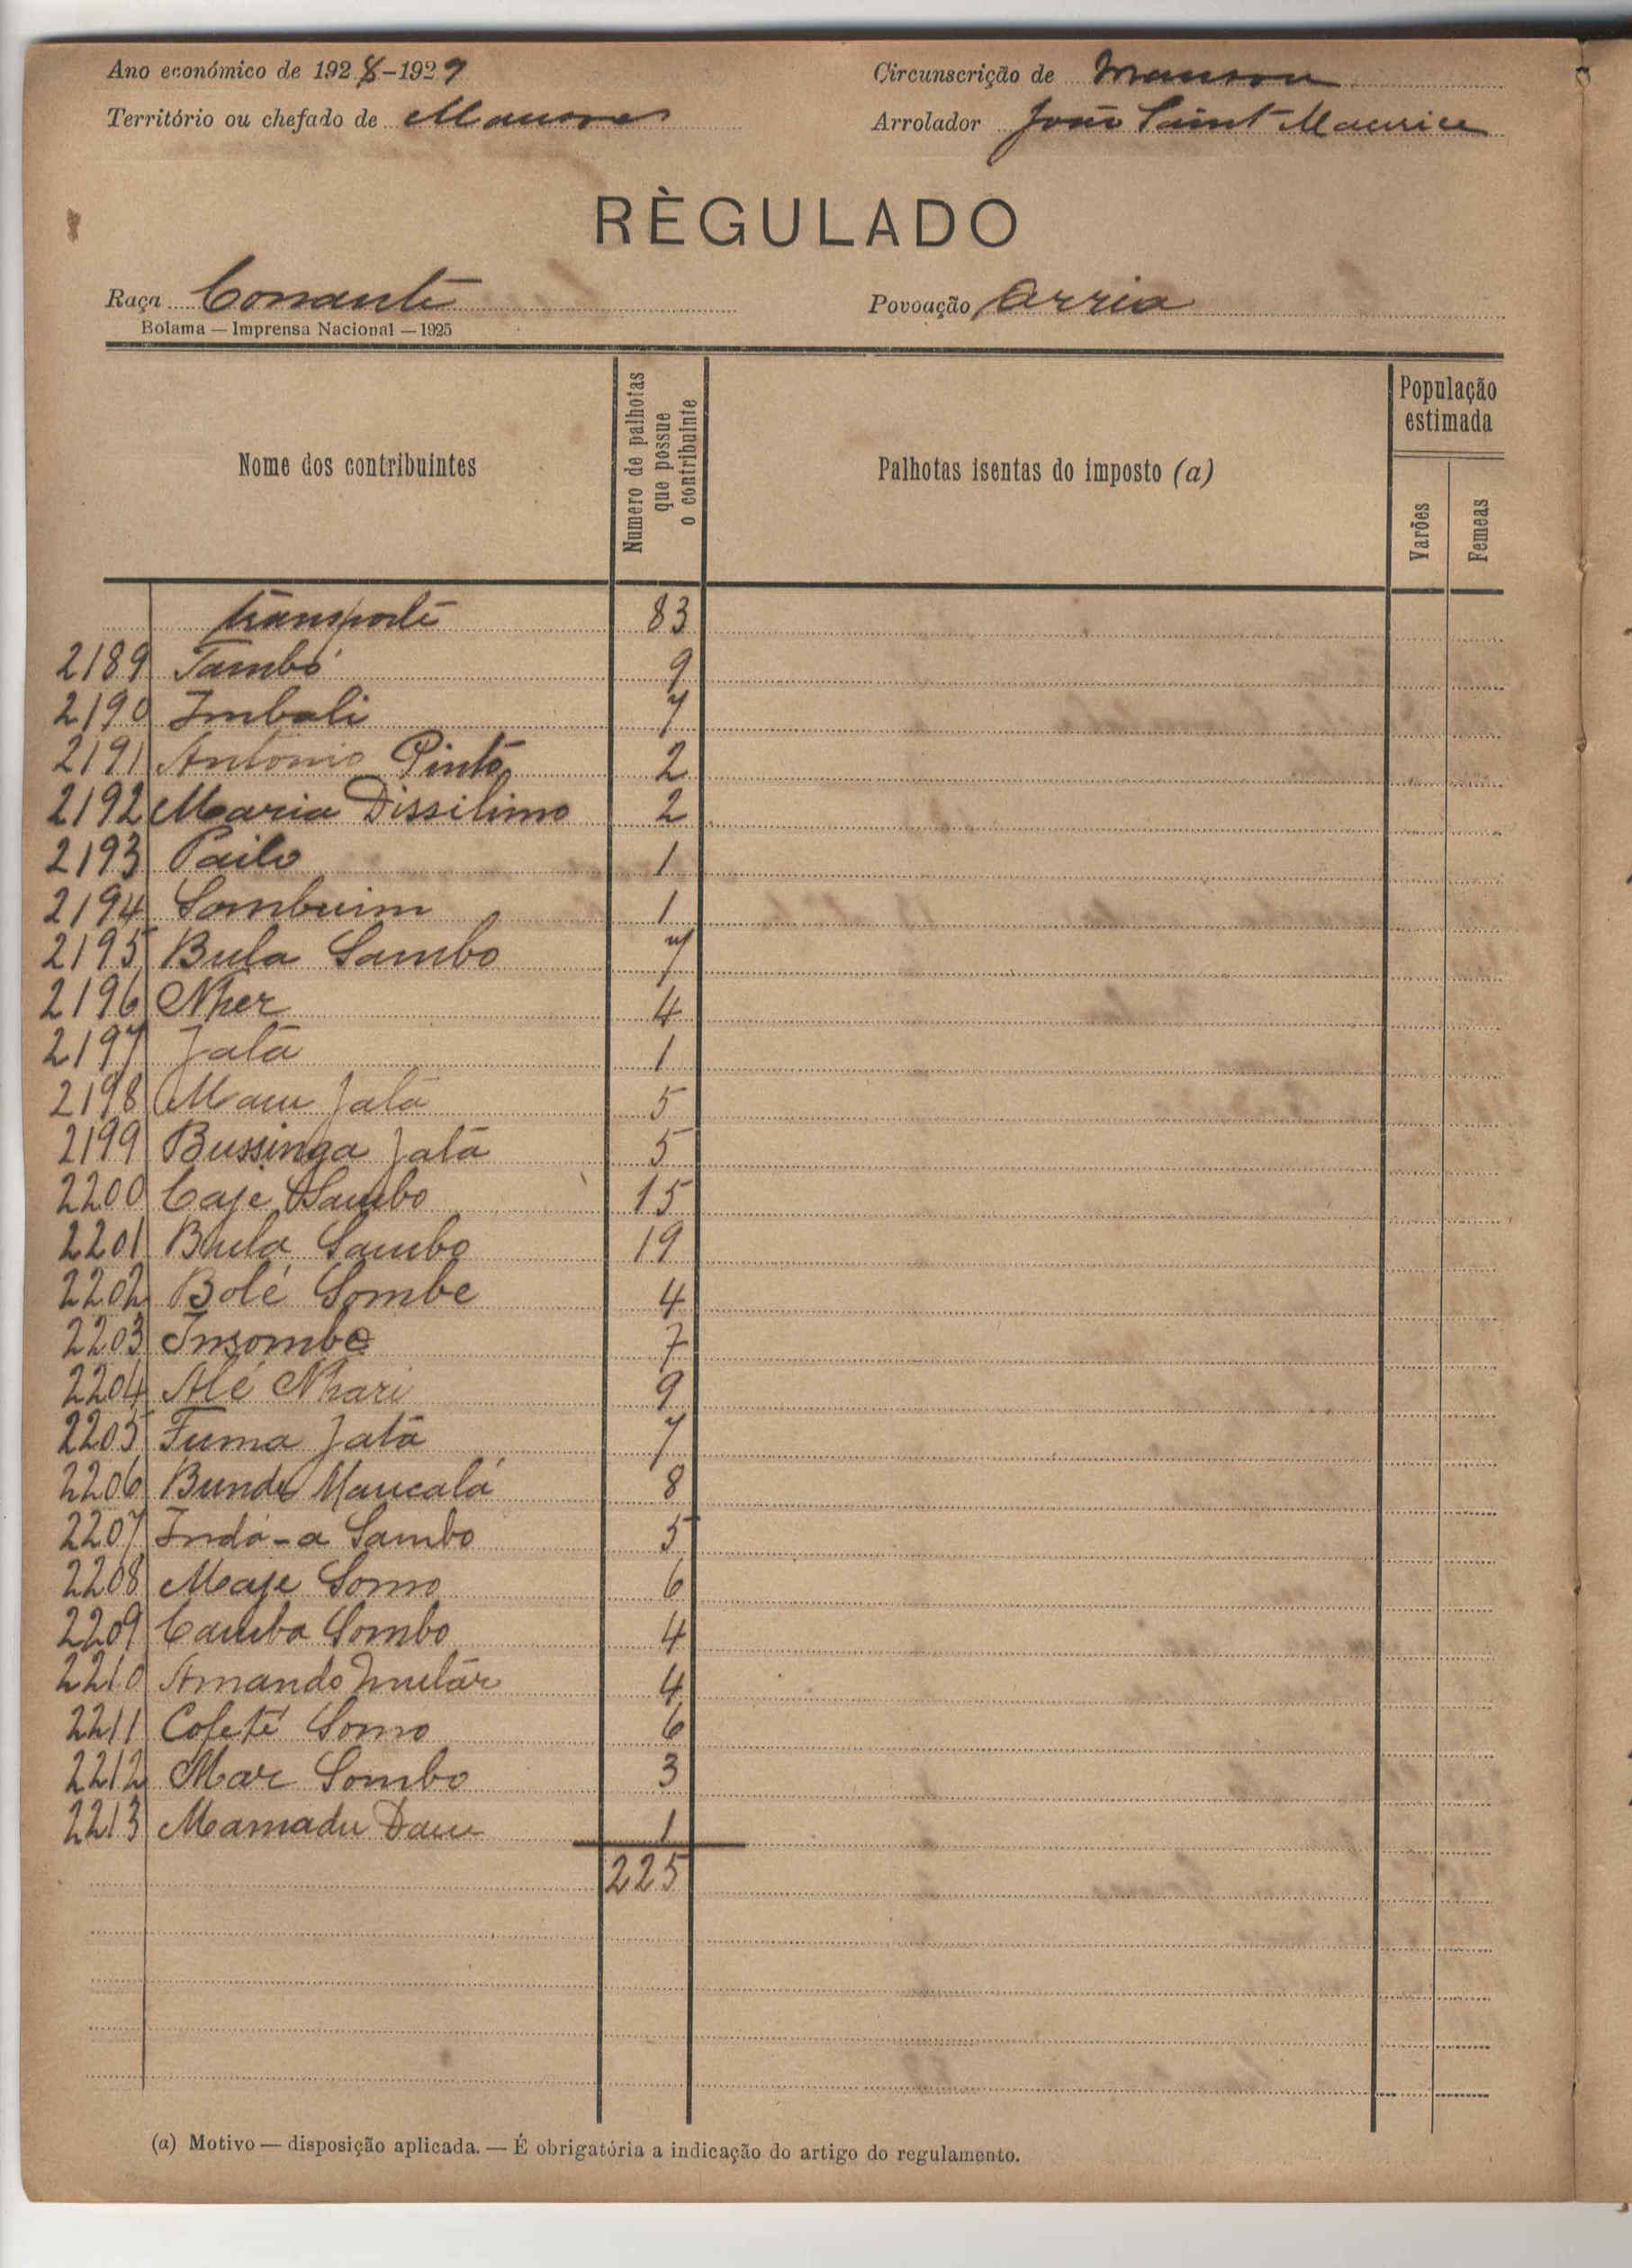 Ano económico de 1928-1929
Circunscrição de Mansoa
Território ou chefado de Mansoa
Arrolador João Saint Maurice
RÈGULADO
Raça
Povoação Arria
Bolama — Imprensa Nacional — 1925
Nome dos contribuintes
Numero de palhotas que possue o contribuinte
Palhotas isentas do imposto (a)
População estimada
Varões
Femeas
Transporte 83
2189 Tambó 9
2190 Imbali 7
2191 Antonio Pinto 2
2192 Maria Dissilimo 2
2193 Pailo 1
2194 Sombuim 1
2195 Bula Sambo 7
2196 Nher 4
2197 Jatá 1
2198 Mau Jatá 5
2199 Bussinga Jatá 5
2200 Caje Sambo 15
2201 Bula Sambo 19
2202 Bolé Sombe 4
2203 Insombe 7
2204 Alé Nhari 9
2205 Fuma Jatá 7
2206 Bunde Mancalá 8
2207 Indá-a Sambo 5
2208 Maje Somo 6
2209 Camba Sombo 4
2210 Amando 4
2211 Cofeté Somo 6
2212 Mar Sombo 3
2213 Mamadu Dau 1
225
(a) Motivo — disposição aplicada. — É obrigatória a indicação do artigo do regulamento.